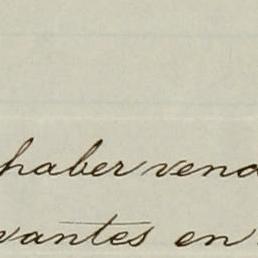 haber vend
vantes en